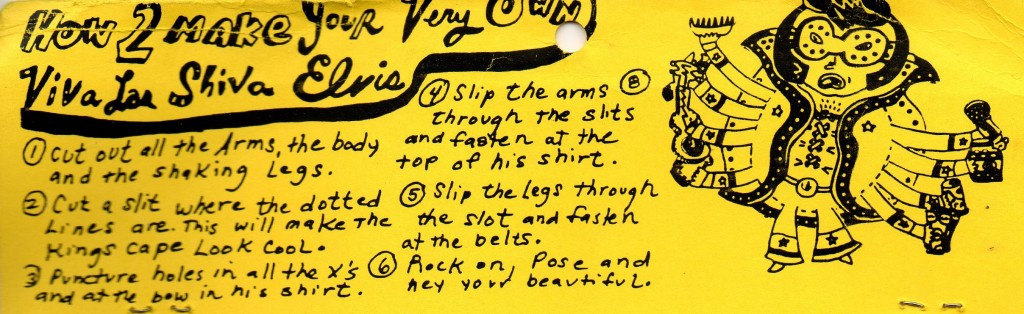 How 2 make Your Very Own
Viva Las Shiva Elvis
① Cut out all the Arms, the body
and the shaking Legs.
② Cut a slit where the dotted
Lines are. This will make The
Kings cape Look Cool.
③ Puncture holes in all the x's
and at the bow in his shirt.
④ Slip the arms ⑧
through the slits
and fasten at the
top of his shirt.
⑤ Slip the Legs through
the slot and fasten
at the belts.
⑥ Rock on, Pose and
hey your beautiful.